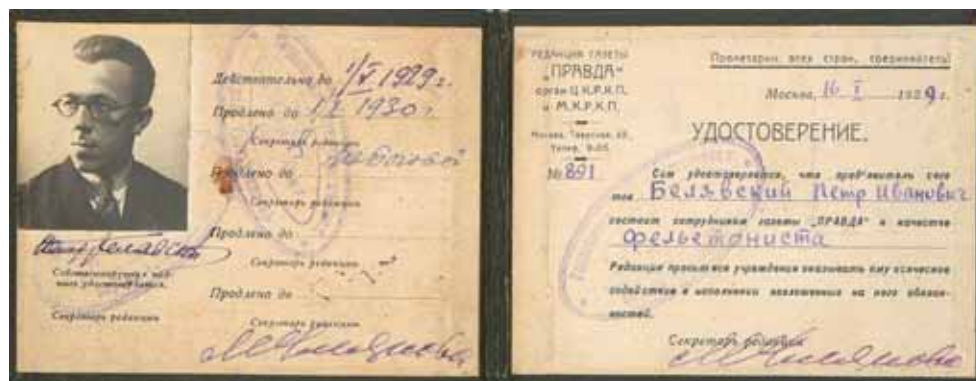 Действительно до 1/V 1929 г.
Продлено до 1/I 1930 г.
Секретарь редакции
Продлено до
Секретарь редакции
Продлено до
Секретарь редакции
Продлено до
Секретарь редакции
Собственноручная под-
Секретарь редакции
РЕДАКЦИЯ ГАЗЕТЫ
„ПРАВДА“
орган Ц.К.Р.К.П.
и М.К.Р.К.П.
Москва, Тверская, 48.
№ 891
Пролетарии всех стран, соединяйтесь!
Москва, 16 I 1929 г.
УДОСТОВЕРЕНИЕ.
Сим удостоверяется, что пред'явитель сего
тов Белявский Петр Иванович
состоит сотрудником газеты „ПРАВДА“ в качестве
фельетониста
Редакция просит все учреждения оказывать ему всяческое
содействие в исполнении возложенных на него обязан-
ностей.
Секретарь редакции